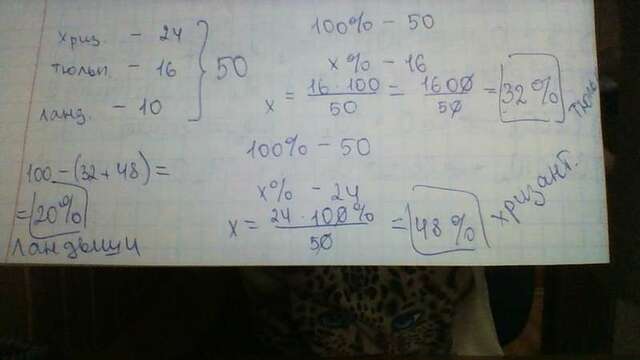 хриз. - 24
тюльп. - 16
ланд. - 10
50
100% - 50
x% - 16
x = 16 · 100 / 50 = 1600 / 50 = 32% тюль.
100% - 50
x% - 24
x = 24 · 100% / 50 = 48% хризант.
100 - (32 + 48) =
= 20%
ландыши